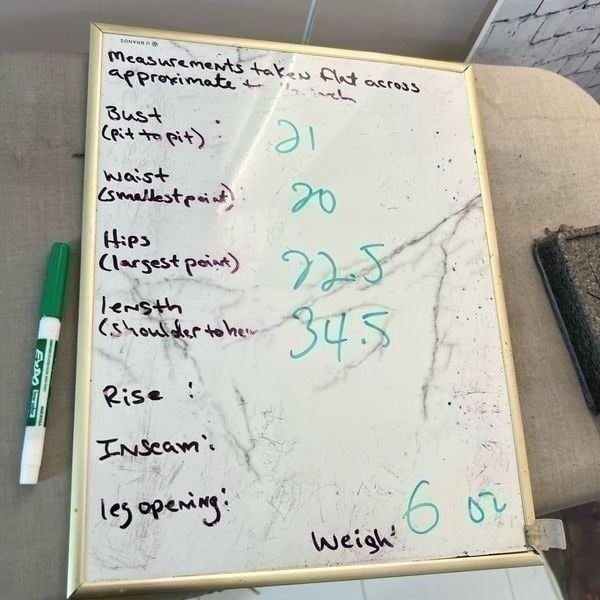 U BRANDS
Measurements taken flat across
approximate
Bust
(pit to pit) : 21
Waist
(smallest point) 20
Hips
(largest point) 22.5
length
(shoulder to hem 34.5
Rise :
Inseam:
leg opening:
Weigh: 6 oz
EXPO